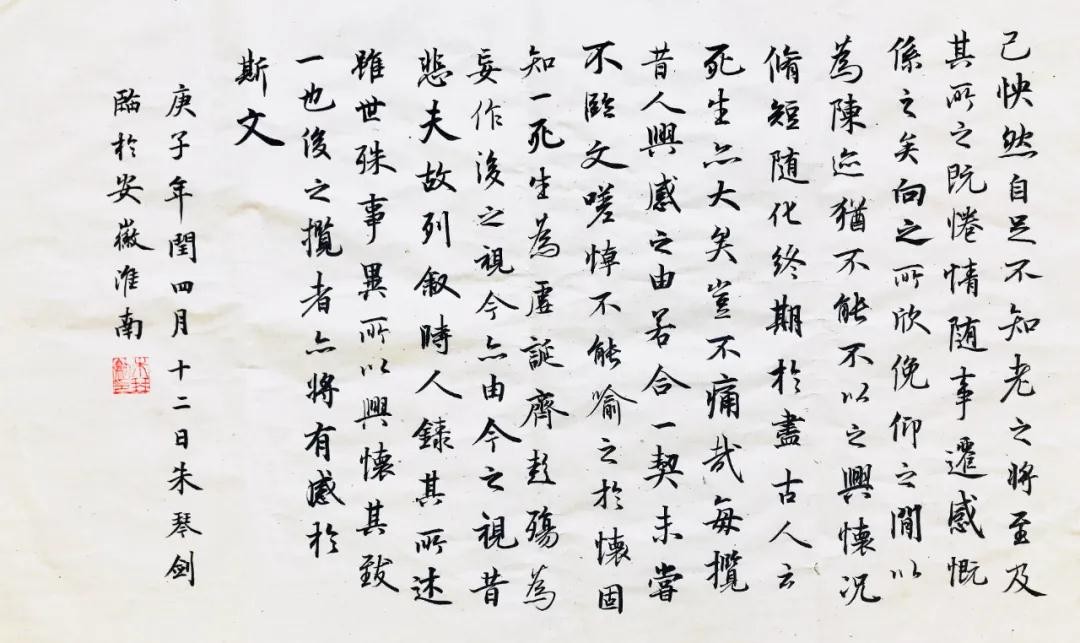 己怏然自足不知老之將至及
其所之既惓情随事遷感慨
係之矣向之所欣俛仰之閒以
為陳迹猶不能不以之興懷况
脩短随化終期於盡古人云
死生亦大矣豈不痛哉每攬
昔人興感之由若合一契未嘗
不臨文嗟悼不能喻之於懷固
知一死生為虛誕齊彭殤為
妄作後之視今亦由今之視昔
悲夫故列叙時人錄其所述
雖世殊事異所以興懷其致
一也後之攬者亦將有感於
斯文
庚子年閏四月十二日朱琴劍
臨於安徽淮南